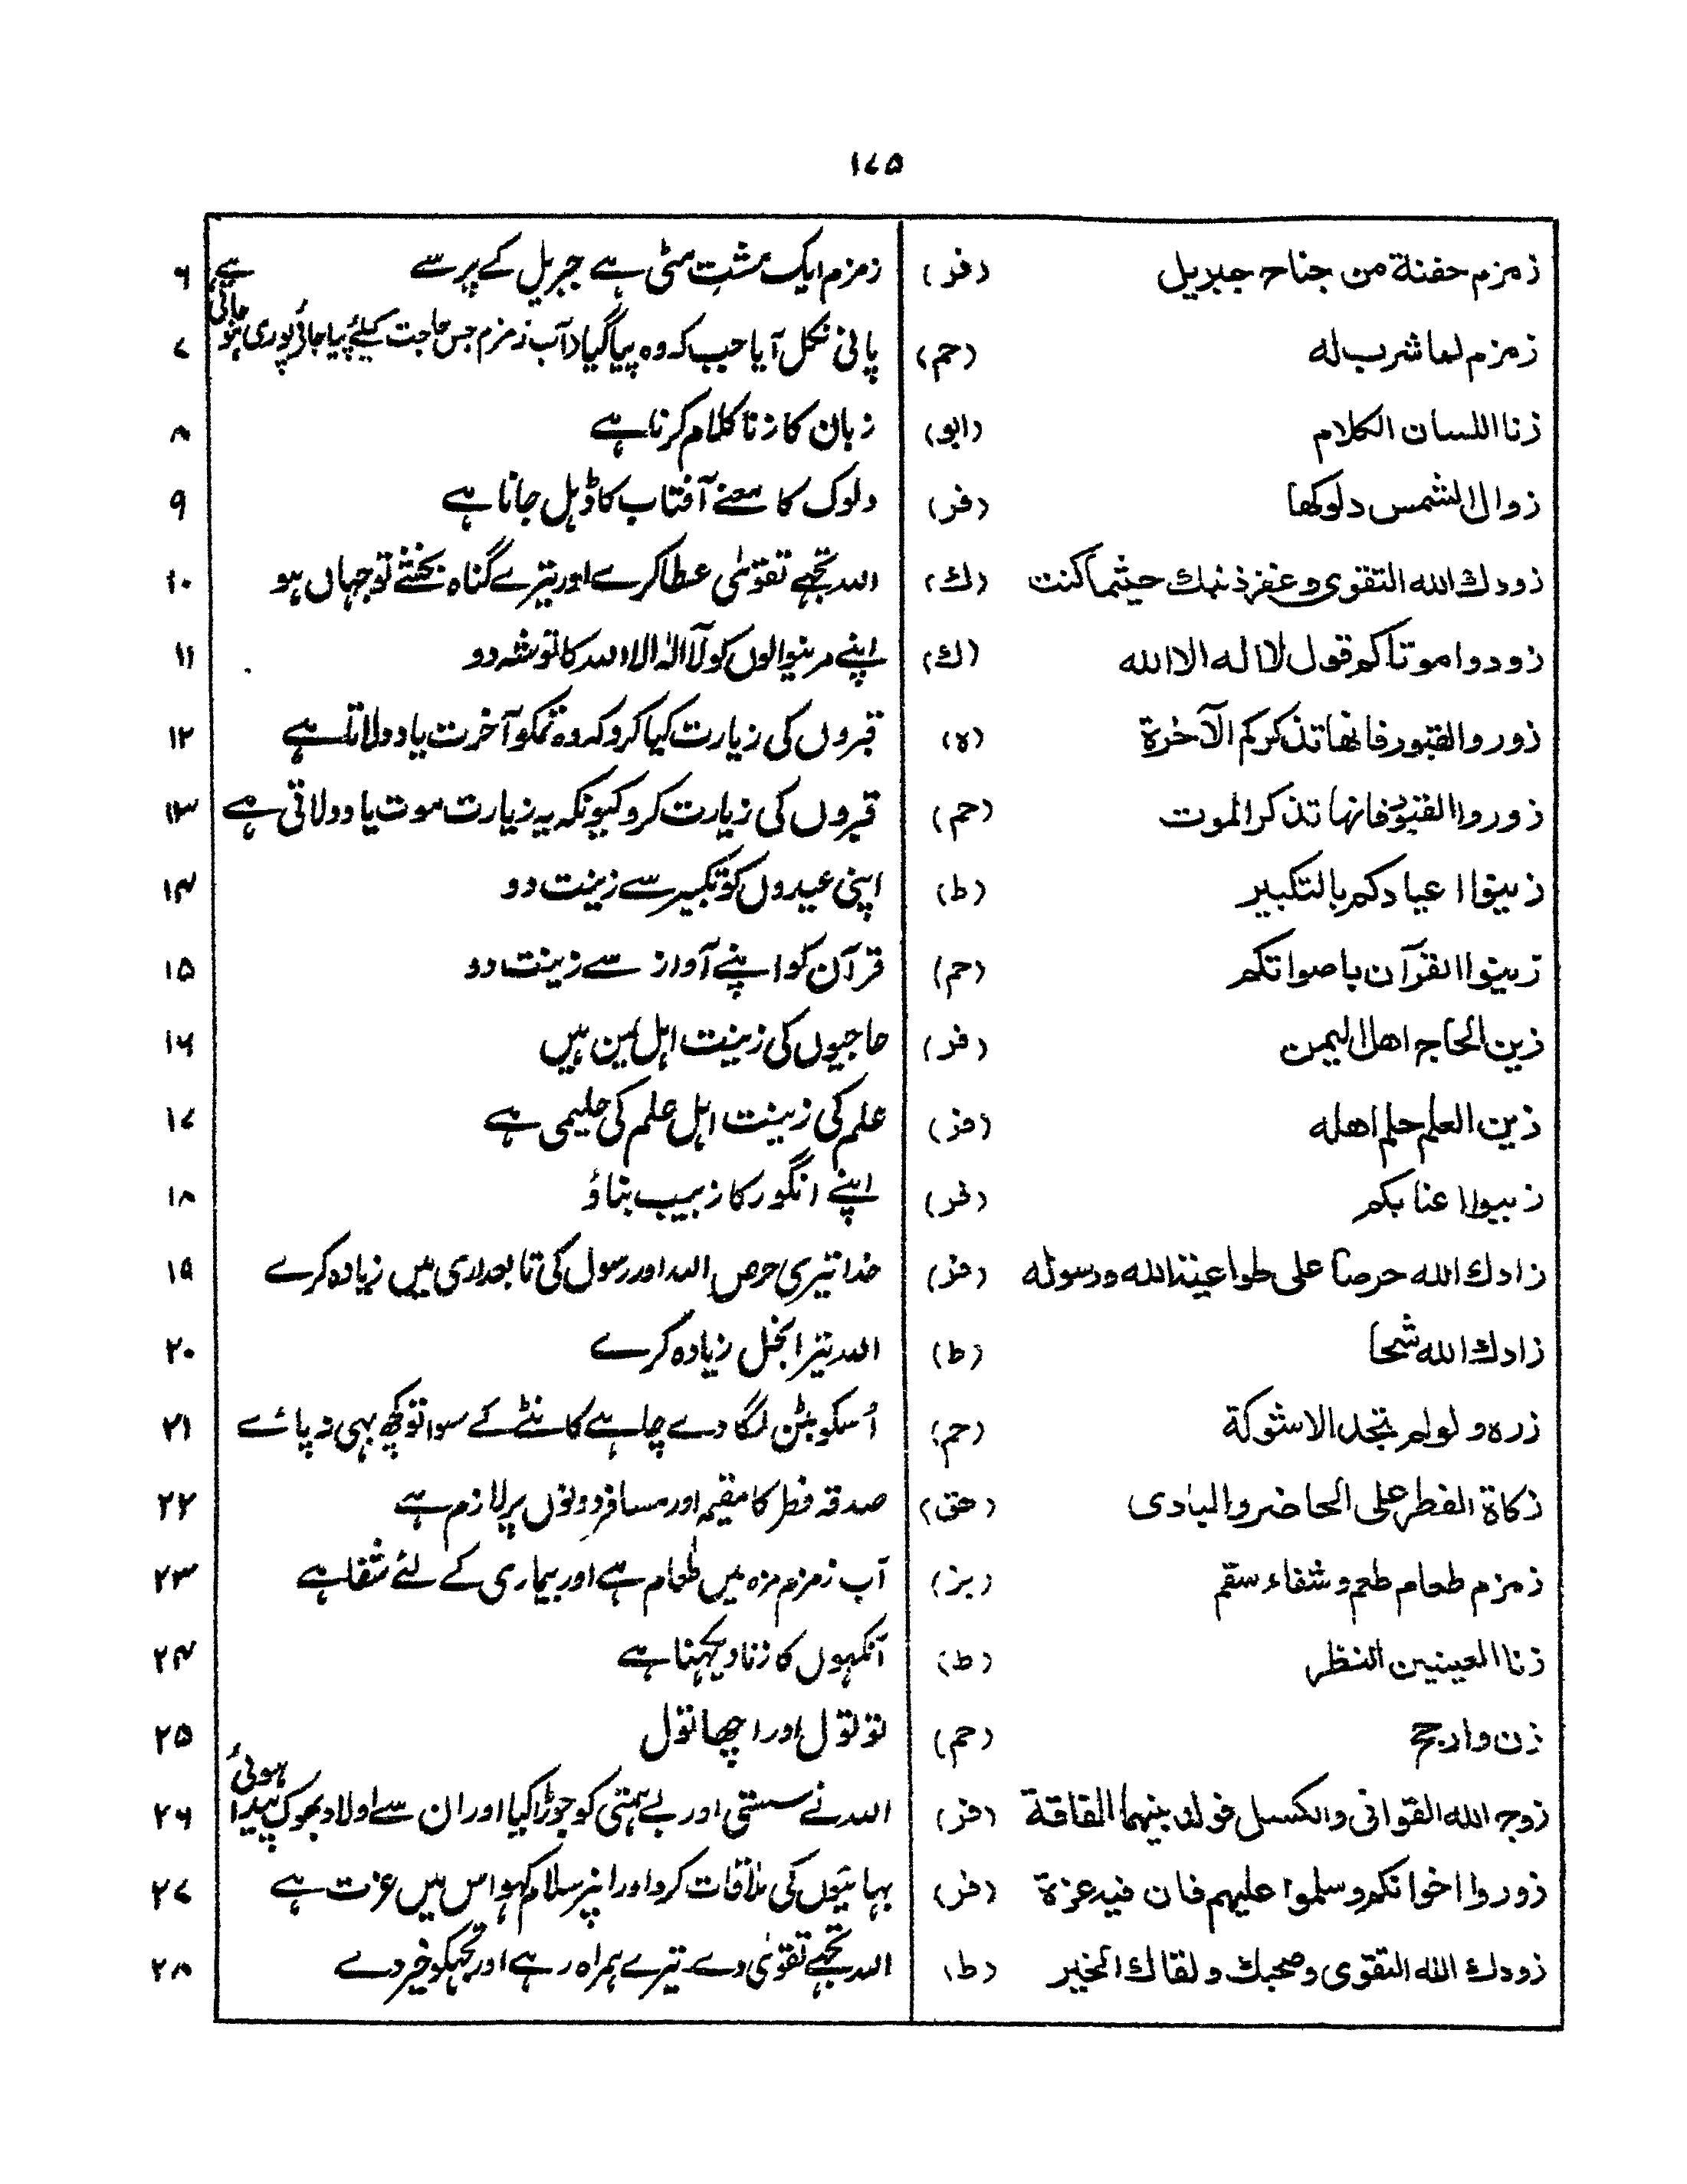 ۱۷۵
زمزم حفنة من جناح جبریل (فر) زمزم ایک مشت مٹی ہے جبریل کے پر سے ۶
زمزم لما شرب له (حم) پانی نکل آیا جب کہ وہ پیا گیا دآب زمزم جس حاجت کیلئے پیا جائے پوری ہو جاتی ہے ۷
زنا اللسان الکلام (ابو) زبان کا زنا کلام کرنا ہے ۸
زوال الشمس دلوکها (فر) دلوک کا معنے آفتاب کا ڈہل جانا ہے ۹
زودك الله التقوی وغفر ذنبك حیثما کنت (ك) اللہ تجھے تقویٰ عطا کرے اور تیرے گناہ بخشے تو جہاں ہو ۱۰
زودوا موتاکم قول لا اله الا الله (ك) اپنے مرنیوالوں کو لَآ اِلٰہ الا اللہ کا توشہ دو ۱۱
زوروا القبور فانها تذکرکم الآخرة (ه) قبروں کی زیارت کیا کرو کہ وہ تمکو آخرت یاد دلاتا ہے ۱۲
زوروا القبور فانها تذکر الموت (حم) قبروں کی زیارت کرو کیونکہ یہ زیارت موت یاد دلاتی ہے ۱۳
زینوا اعیادکم بالتکبیر (ط) اپنی عیدوں کو تکبیر سے زینت دو ۱۴
زینوا القرآن باصواتکم (حم) قرآن کو اپنے آواز سے زینت دو ۱۵
زین الحاج اهل الیمن (فر) حاجیوں کی زینت اہل یمن ہیں ۱۶
زین العلم حلم اهله (فر) علم کی زینت اہل علم کی حلیمی ہے ۱۷
زببوا اعنابکم (فر) اپنے انگور کا زبیب بناؤ ۱۸
زادك الله حرصا علی طواعیة الله ورسوله (فر) خدا تیری حرص اللہ اور رسول کی تابعداری میں زیادہ کرے ۱۹
زادك الله شحا (ط) اللہ تیرا بخل زیادہ کرے ۲۰
زره ولو لم تجد الا شوکة (حم) اُسکو بٹن لگا دے چاہے کانٹے کے سوا تو کچھ بہی نہ پائے ۲۱
زکاة الفطر علی الحاضر والبادی (هق) صدقہ فطر کا مقیم اور مسافر دونوں پر لازم ہے ۲۲
زمزم طعام طعم وشفاء سقم (بز) آب زمزم مزہ میں طعام ہے اور بیماری کے لئے شفا ہے ۲۳
زنا العینین النظر (ط) آنکہوں کا زنا دیکہنا ہے ۲۴
زن وارجح (حم) تو تول اور اچھا تول ۲۵
زوج الله التوانی والکسل فولد بینهما الفاقة (فر) اللہ نے سستی اور بے ہمتی کو جوڑا کیا اور ان سے اولاد بھوک پیدا ہوئی ۲۶
زوروا اخوانکم وسلموا علیهم فان فیه عزة (فر) بہائیوں کی ملاقات کرو اور انپر سلام کہو اس میں عزت ہے ۲۷
زودك الله التقوی وصحبك ولقاك الخیر (ط) اللہ تجھے تقویٰ دے تیرے ہمراہ رہے اور تجہکو خیر دے ۲۸